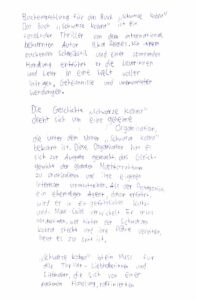 Buchempfehlung für das Buch „Schwarze Kobra"
Das Buch „Schwarze Kobra" ist ein
Thriller von dem international
bekannten Autor
und einer spannenden
Handlung entführt er die Leserinnen
und Leser in eine Welt voller
Intrigen, Geheimnisse und unerwarteter
Wendungen.
Die Geschichte „Schwarze Kobra"
dreht sich um eine geheime
Organisation,
die unter dem Namen „Schwarze Kobra"
bekannt ist. Diese Organisation hat es
sich zur Aufgabe gemacht das Gleich-
gewicht der globalen
zu und ihre eigenen
Interessen
ein ehemaliger Agent, davon erfährt,
wird er in ein gefährliches Katz-
und- Maus-Spiel verwickelt. Er muss
wer hinter der Schwarzen
Kobra steckt und ihre Pläne
bevor es zu spät ist.
„Schwarze Kobra" ist ein Muss für
alle Thriller - Liebhaberinnen und
Liebhaber, die sich von einer
Handlung, raffinierten